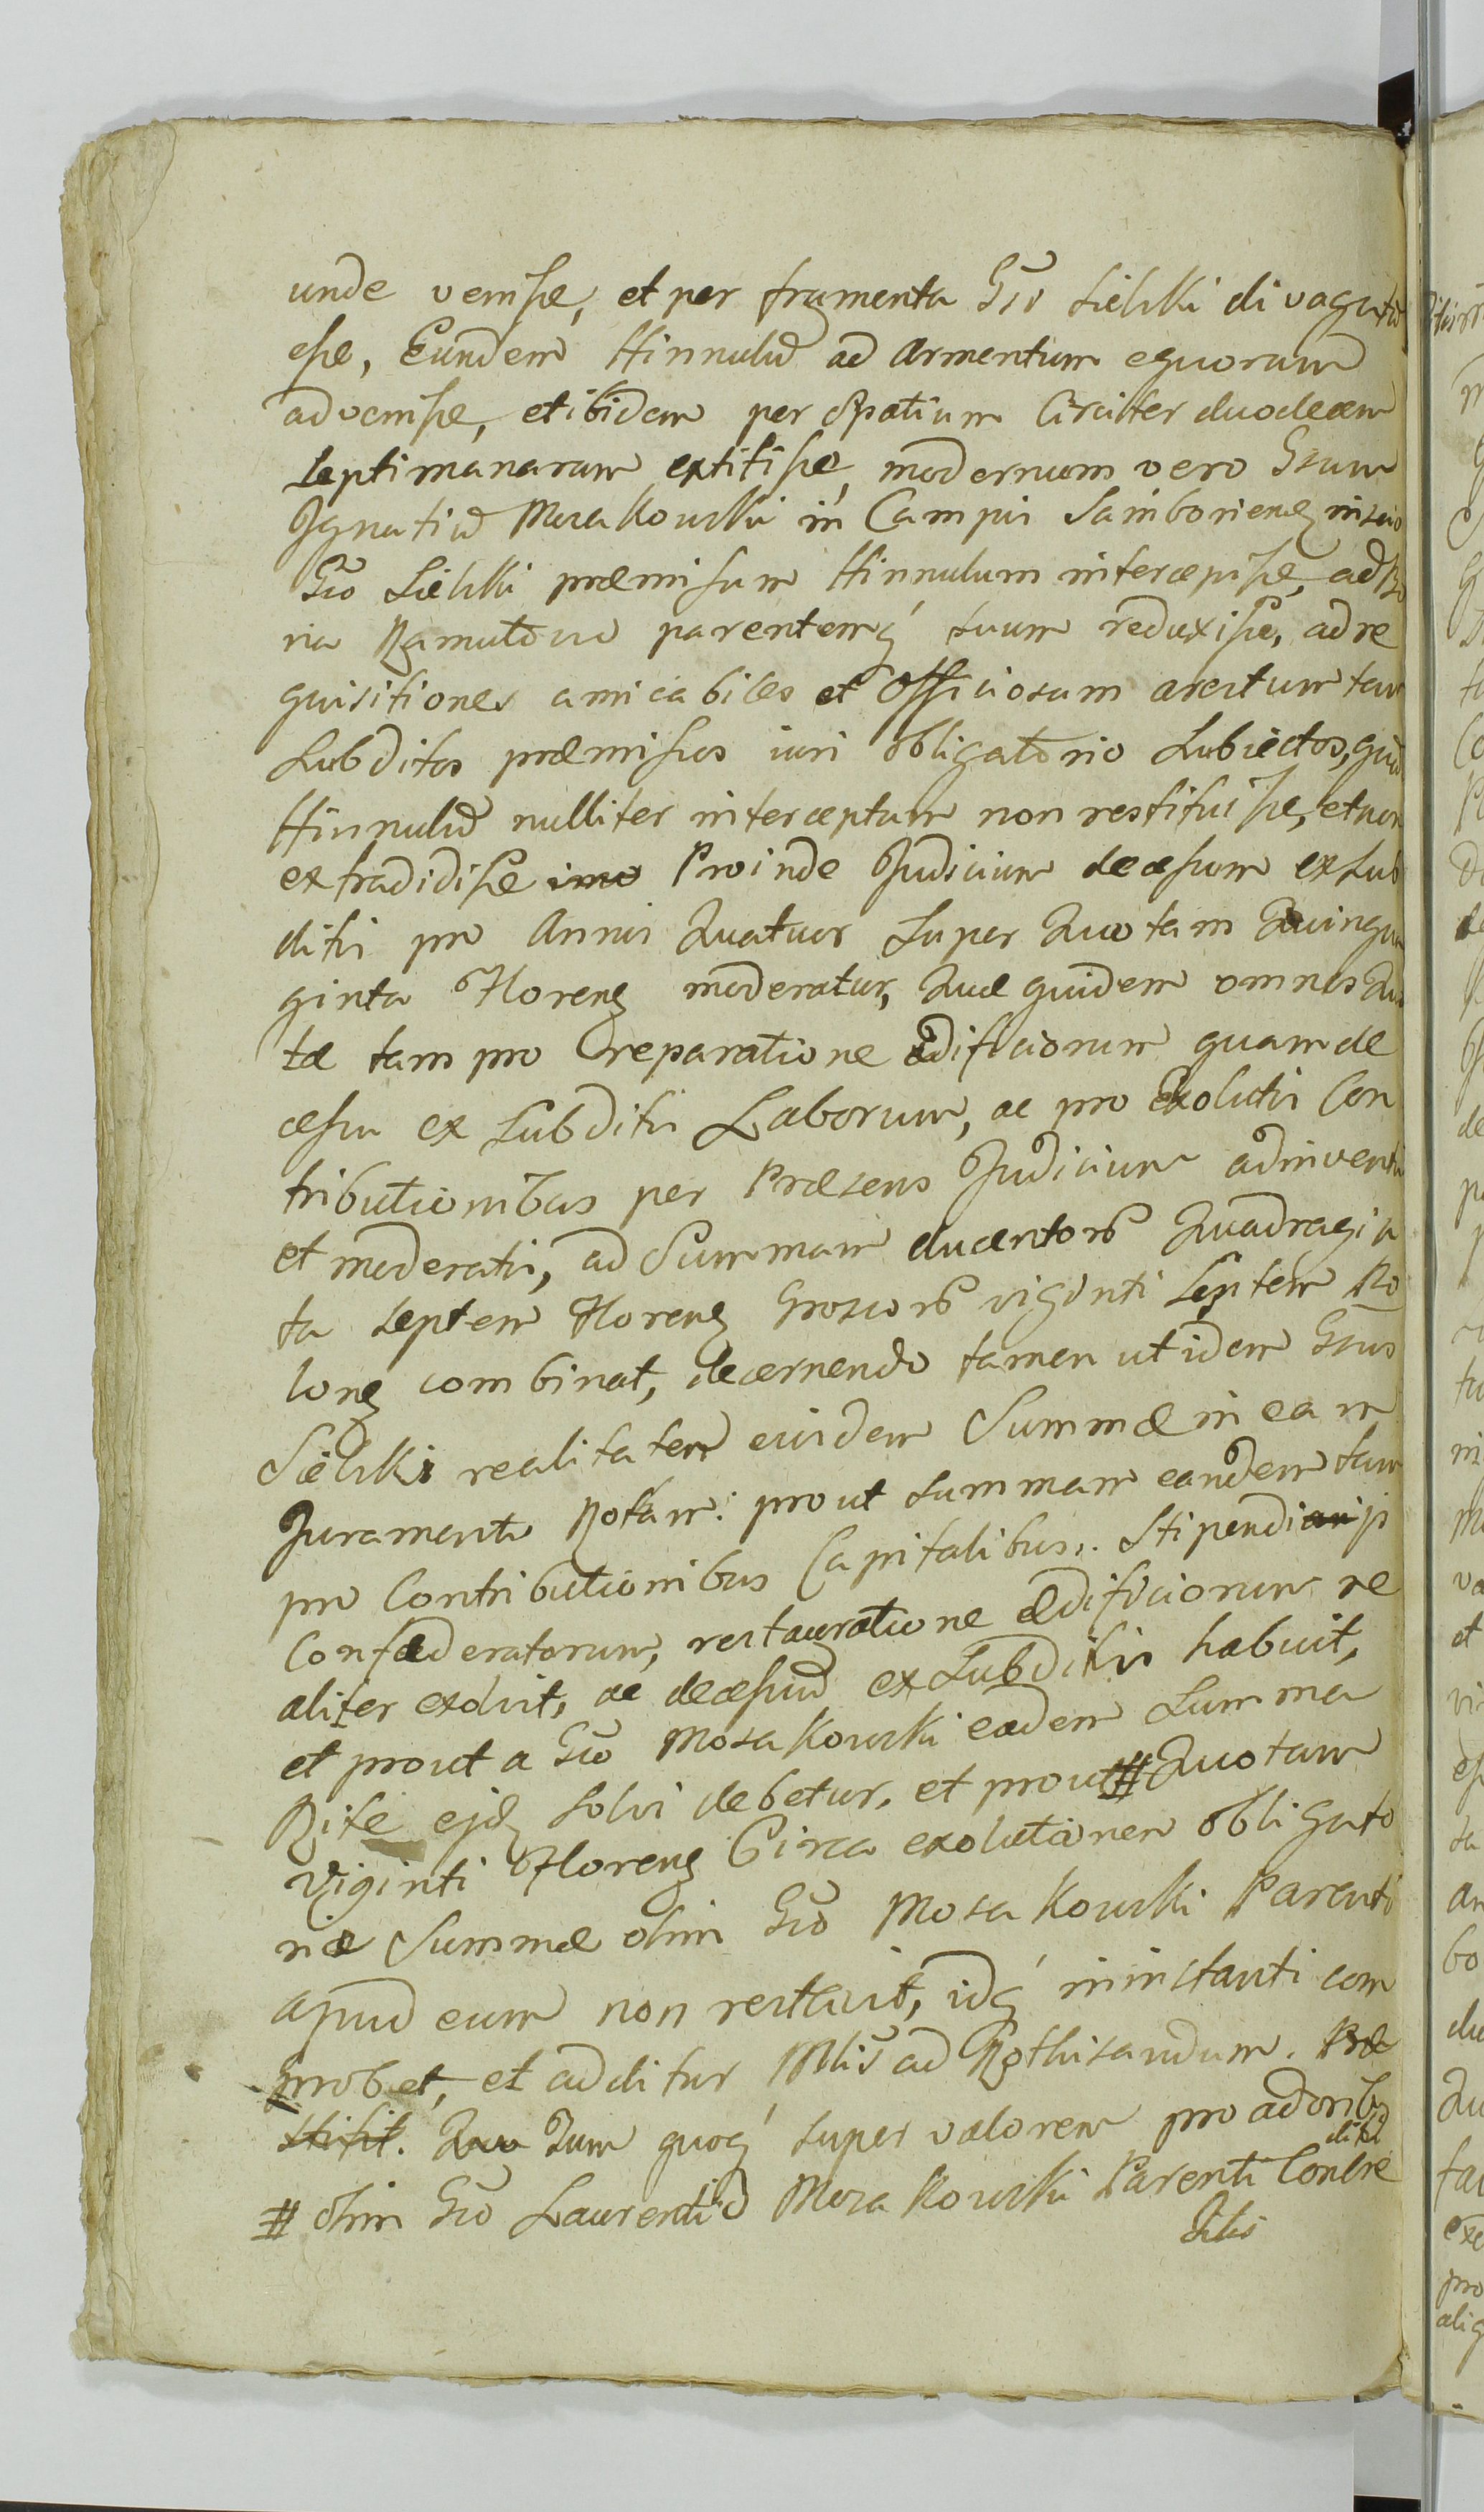 unde venisse, et per frumenta Gso Sielski divagatũ
esse, Eundem Hinnulũ ad armentum equorum
advenisse, et ibidem per spatium Circiter duodecem
septimanarum extitisse, modernum vero Gsum
Ignatiũ Mosakowski in Campis Samborienẽ inscio
Gso Sielski præmissum Hinnulum intercepisse, ad Bo
na Ramutowo parentemq́ suum reduxisse, ad re
quisitiones amicabiles et Officiosam arestum tam
Subditos præmissos iuri obligatorio Subiectos, quã
Hinnulũ nulliter interceptum non restituisse, et non
extradidisse Proinde Judicium decessum ex Sub
ditis pro Annis Quatuor Super Quotam Quinqua
ginta Florenẽ moderatur, Quæ quidem omnes Quo
tæ tam pro reparatione ædificiorum quam de
cessu ex Subditis Laborum, ac pro Exolutis Con
tributionibus per Præsens Judicium adinventis
et moderatis, ad Summam ducentorũ Quadragin
ta septem Florenẽ Grossorũ viginti Septem Po
lonẽ combinat, decernendo tamen ut idem Gsus
Sielski realitatem eiusdem Summæ in eam
Juramenti Rotam: prout summam eandem tam
pro Contributionibus Capitalibus, Stipendijs
Confæderatorum, restauratione ædificiorum re
aliter exolvit, ac decessũ ex Subditis habuit,
et prout a Gso Mosakowski eadem Summa
Rite ejdẽ solvi debetur, et prout # Quotam
Viginti Florenẽ Circa exolutionem obligato
riæ Summæ olim Gso Mosakowski Parenti
apud eum non restituit, idq́ in instanti com
probet, et additur Mlis ad Rothisandum.
Tum quoq́ super valorem pro adoribq
# olim Gso Laurentio Mosakowski Parenti Conde
ditis